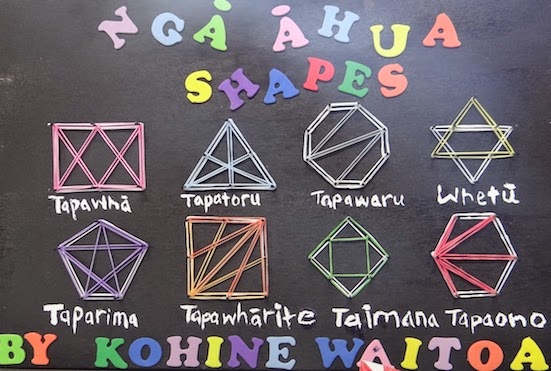 NGĀ ĀHUA
SHAPES
Tapawhā Tapatoru Tapawaru Whetū
Taparima Tapawhārite Taimana Tapaono
BY KOHINE WAITOA